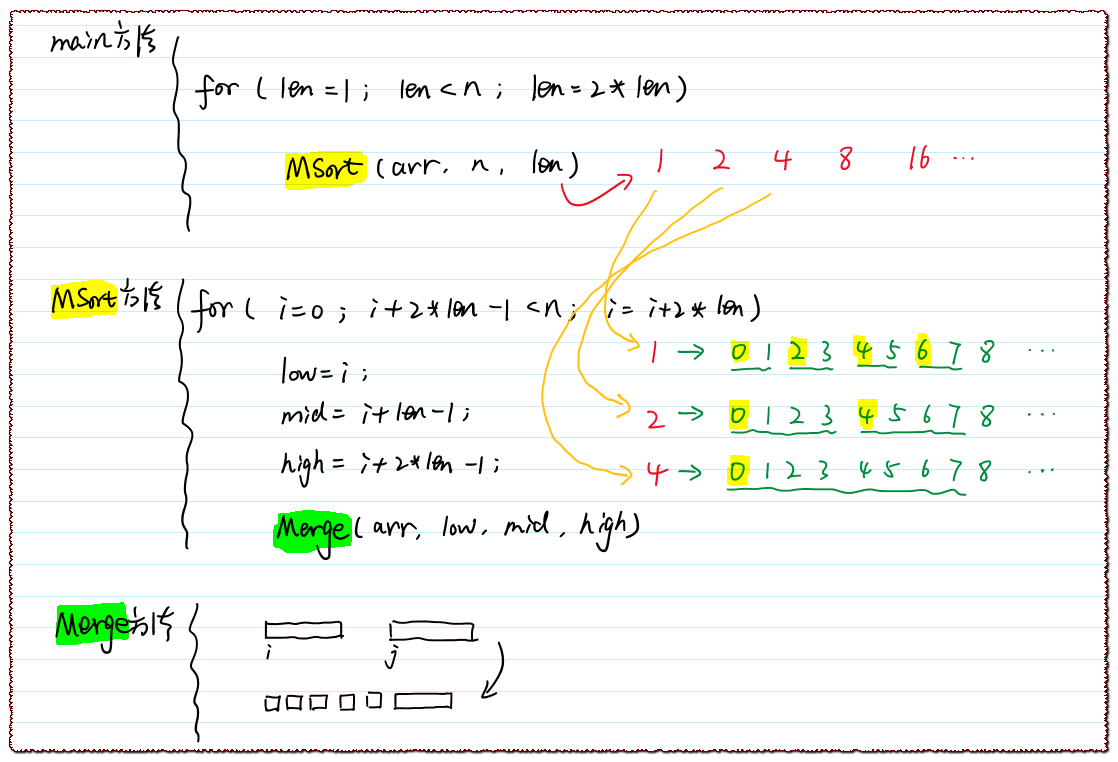 main方法
for ( len=1 ; len<n ; len=2*len)
MSort (arr, n, len) 1 2 4 8 16 ...
MSort方法
for ( i=0 ; i+2*len-1<n; i=i+2*len)
1 → 0 1 2 3 4 5 6 7 8 ...
low=i ;
mid= i+len-1;
2 → 0 1 2 3 4 5 6 7 8 ...
high= i+2*len-1;
4 → 0 1 2 3 4 5 6 7 8 ...
Merge(arr, low, mid, high)
Merge方法
i j